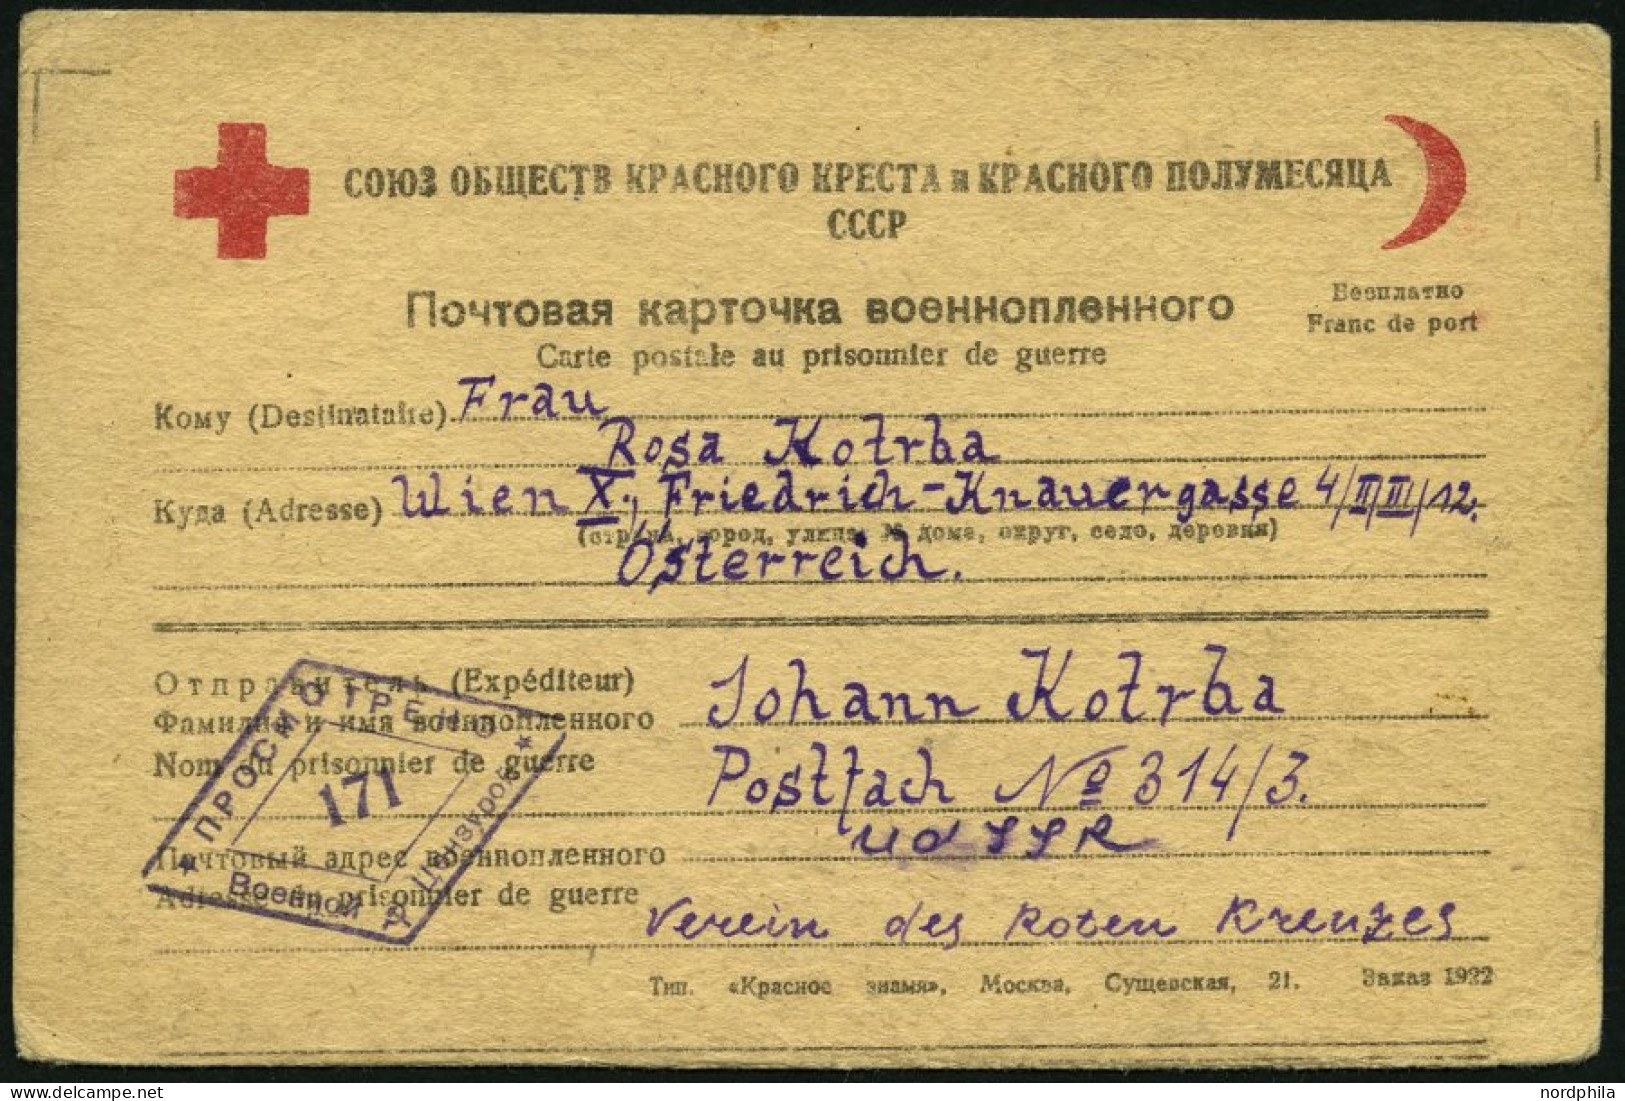 СОЮЗ ОБЩЕСТВ КРАСНОГО КРЕСТА и КРАСНОГО ПОЛУМЕСЯЦА
СССР
Почтовая карточка военнопленного
Бесплатно
Franc de port
Carte postale au prisonnier de guerre
Кому (Destinataire) Frau
Rosa Kotrba
Куда (Adresse) Wien X., Friedrich-Knauergasse 4/II/III/12.
(страна, город, улица, № дома, округ, село, деревня)
Österreich.
Отправитель (Expéditeur)
Фамилия и имя военнопленного
Johann Kotrba
Nom du prisonnier de guerre
Postfach № 314/3.
UdSSR
Почтовый адрес военнопленного
Adresse du prisonnier de guerre
Verein des Roten Kreuzes
ПРОСМОТРЕНО
171
Военной Цензурой
Тип. «Красное знамя», Москва, Сущевская, 21. Заказ 1922
nordphila